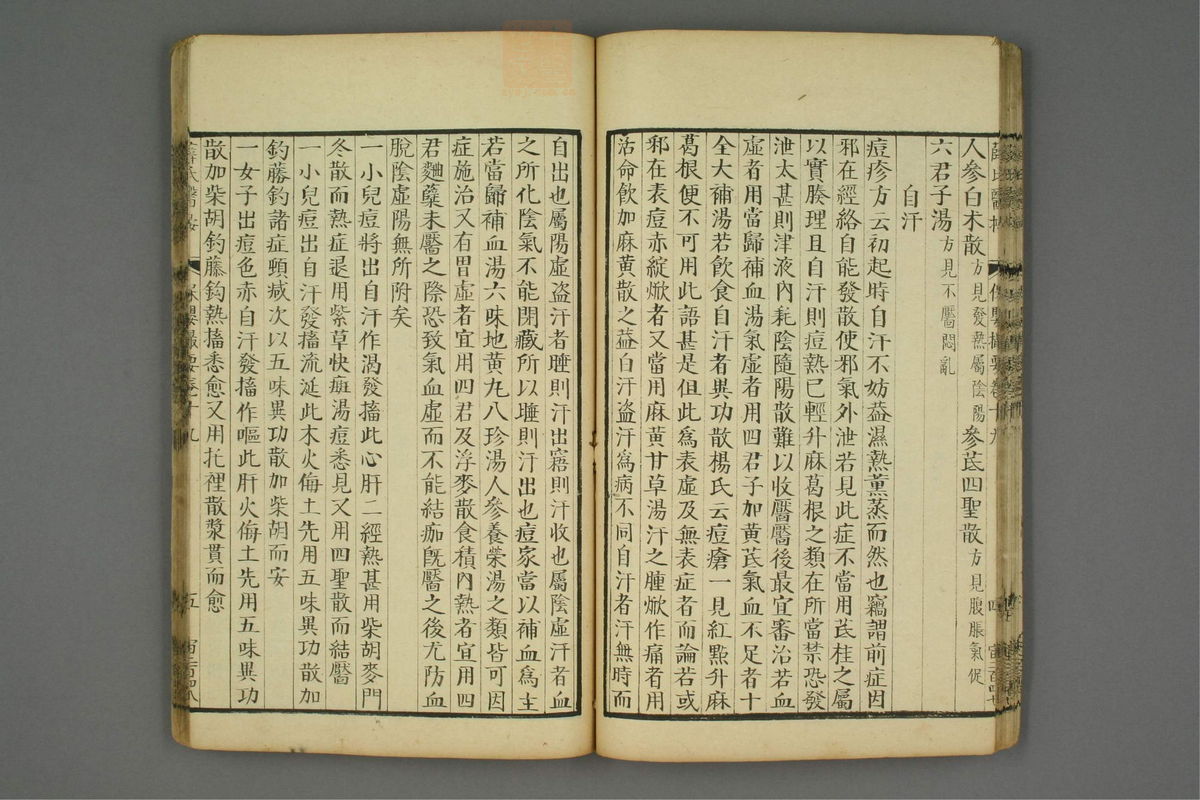 人參白朮散方見發熱屬陰陽 參芪四聖散方見腹脹氣促
六君子湯方見不靨悶亂
自汗
痘疹方云初起時自汗不妨葢濕熱薰蒸而然也竊謂前症因
邪在經絡自能發散使邪氣外泄若見此症不當用芪桂之屬
以實腠理且自汗則痘熱已輕升麻葛根之類在所當禁恐發
泄太甚則津液內耗陰隨陽散難以收靨靨後最宜審治若血
虛者用當歸補血湯氣虛者用四君子加黃芪氣血不足者十
全大補湯若飲食自汗者異功散楊氏云痘瘡一見紅㸃升麻
葛根便不可用此語甚是但此爲表虛及無表症者而論若或
邪在表痘赤綻焮者又當用麻黃甘草湯汗之腫焮作痛者用
活命飲加麻黃散之葢自汗盜汗爲病不同自汗者汗無時而
自出也屬陽虛盜汗者睡則汗出寤則汗收也屬陰虛汗者血
之所化陰氣不能閉藏所以睡則汗出也痘家當以補血爲主
若當歸補血湯六味地黃丸八珍湯人參養榮湯之類皆可因
症施治又有胃虛者宜用四君及浮麥散食積內熱者宜用四
君麯蘗未靨之際恐致氣血虛而不能結痂旣靨之後尤防血
脫陰虛陽無所附矣
一小兒痘將出自汗作渴發搐此心肝二經熱甚用柴胡麥門
冬散而熱症退用紫草快斑湯痘悉見又用四聖散而結靨
一小兒痘出自汗發搐流涎此木火侮土先用五味異功散加
鈞藤鈞諸症頓减次以五味異功散加柴胡而安
一女子出痘色赤自汗發搐作嘔此肝火侮土先用五味異功
散加柴胡鈞藤鈞熱搐悉愈又用托裡散漿貫而愈